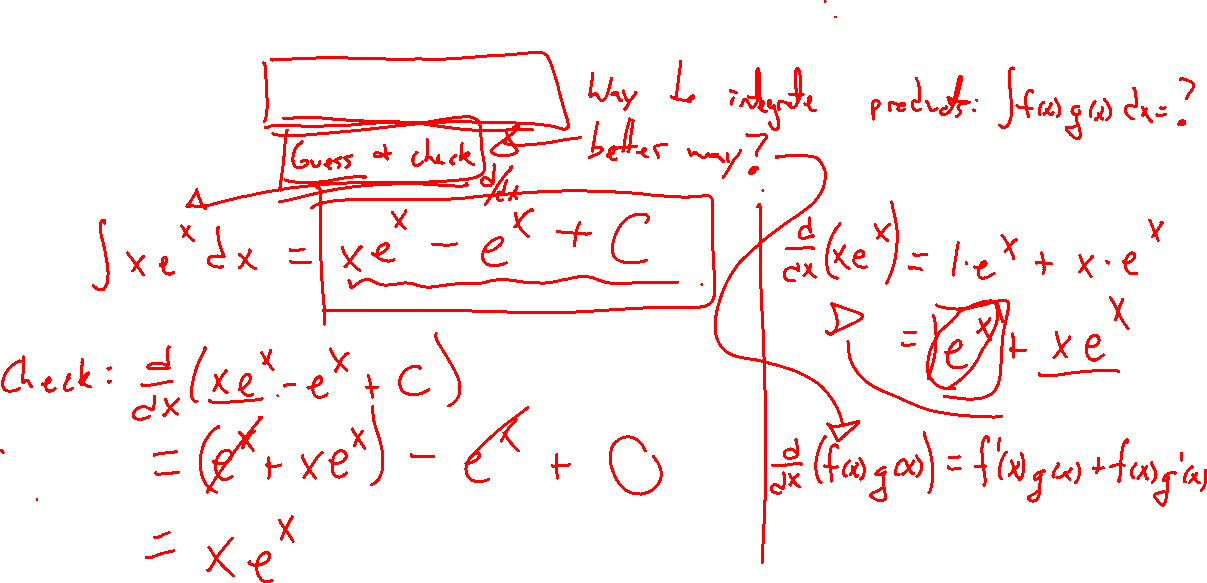 Way to integrate products: ∫f(x) g(x) dx = ?
Guess & check
better way?
d/dx
∫ x e^x dx = xe^x - e^x + C
Check: d/dx (xe^x - e^x + C)
= (e^x + xe^x) - e^x + 0
= xe^x
d/dx (xe^x) = 1·e^x + x·e^x
= e^x + xe^x
d/dx (f(x) g(x)) = f'(x) g(x) + f(x) g'(x)